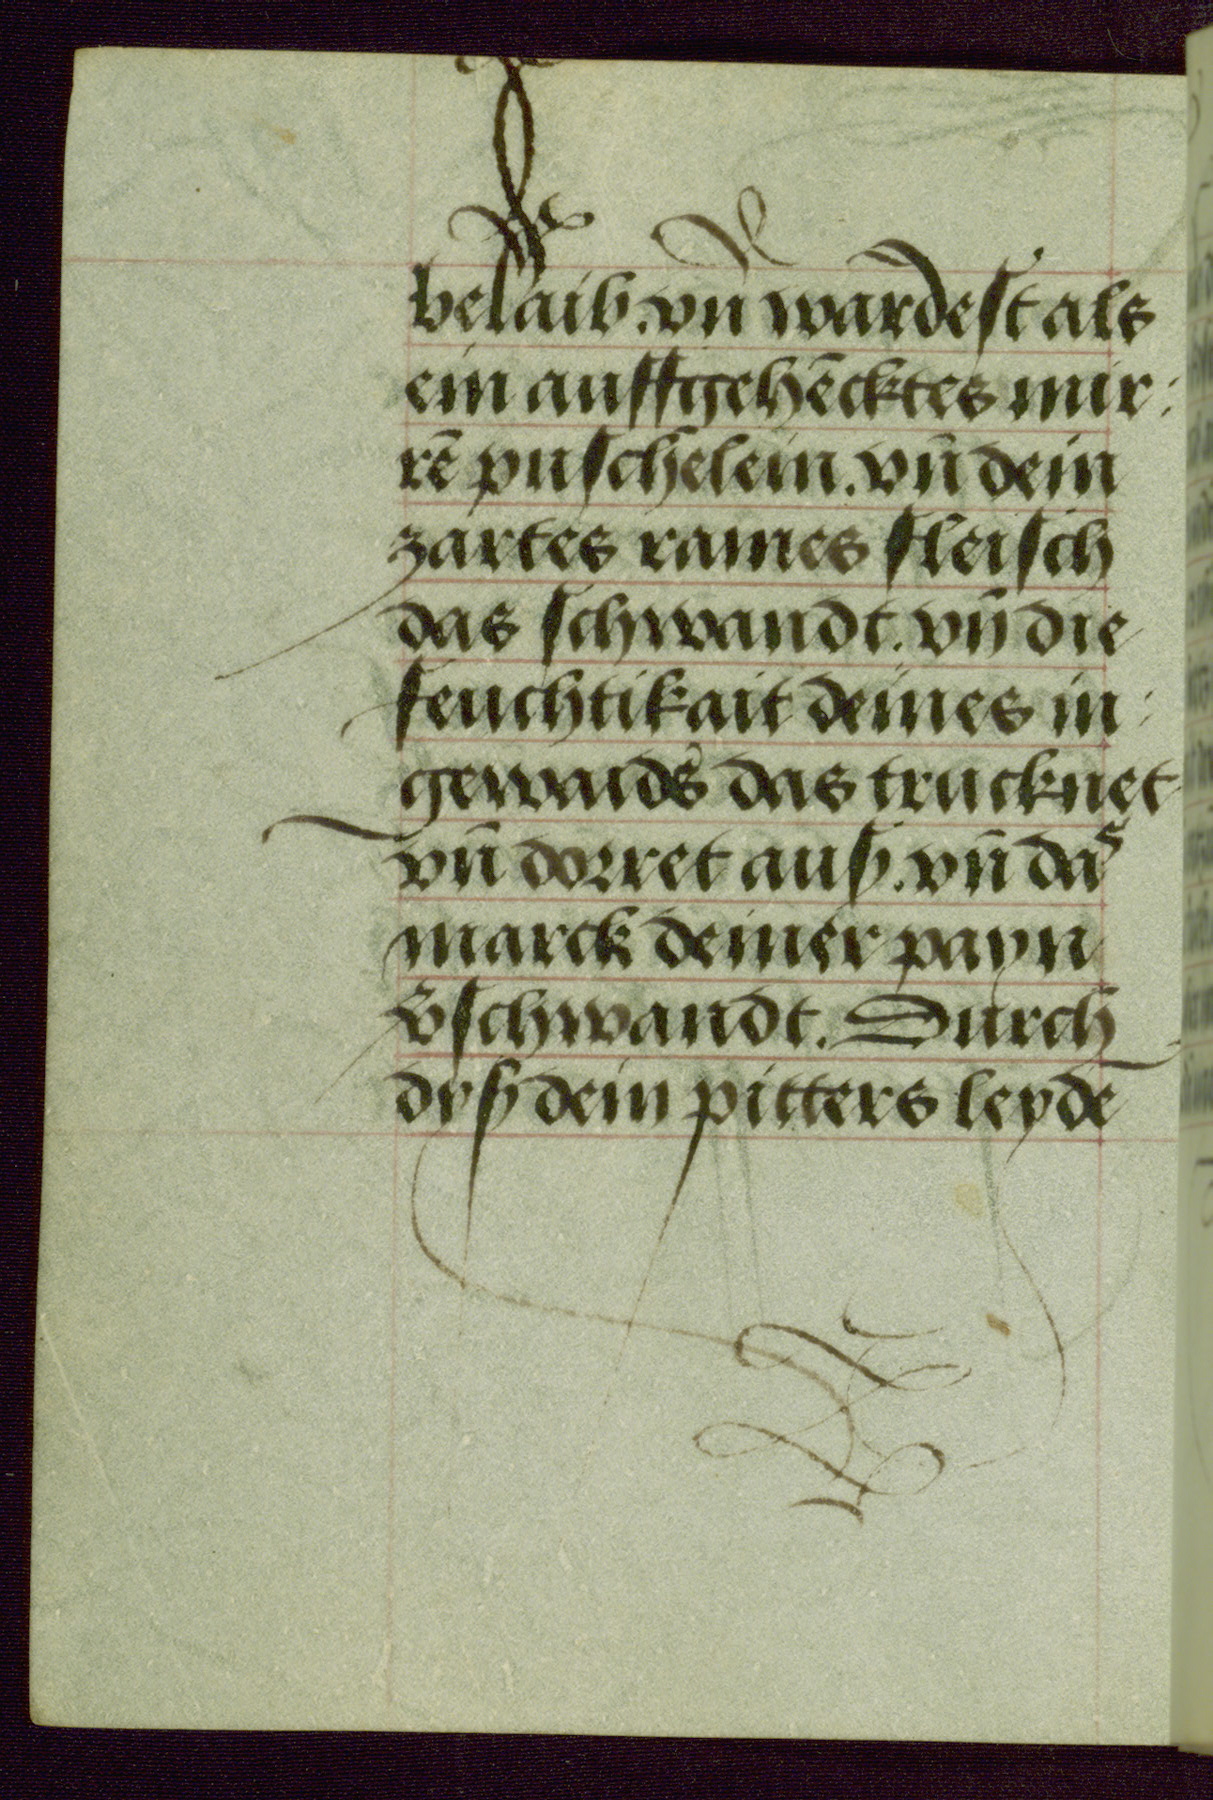 belaib. vn̄ wardest als
ein auffgehēcktes mir:
rē puschelein. vn̄ dein
zartes raines fleisch
das schwandt. vn̄ die
feuchtikait deines in:
gewaids das trucknet
vn̄ dorret auß. vn̄ das
marck deiner payn
v̄schwandt. Durch
dyß dein pitters leydē